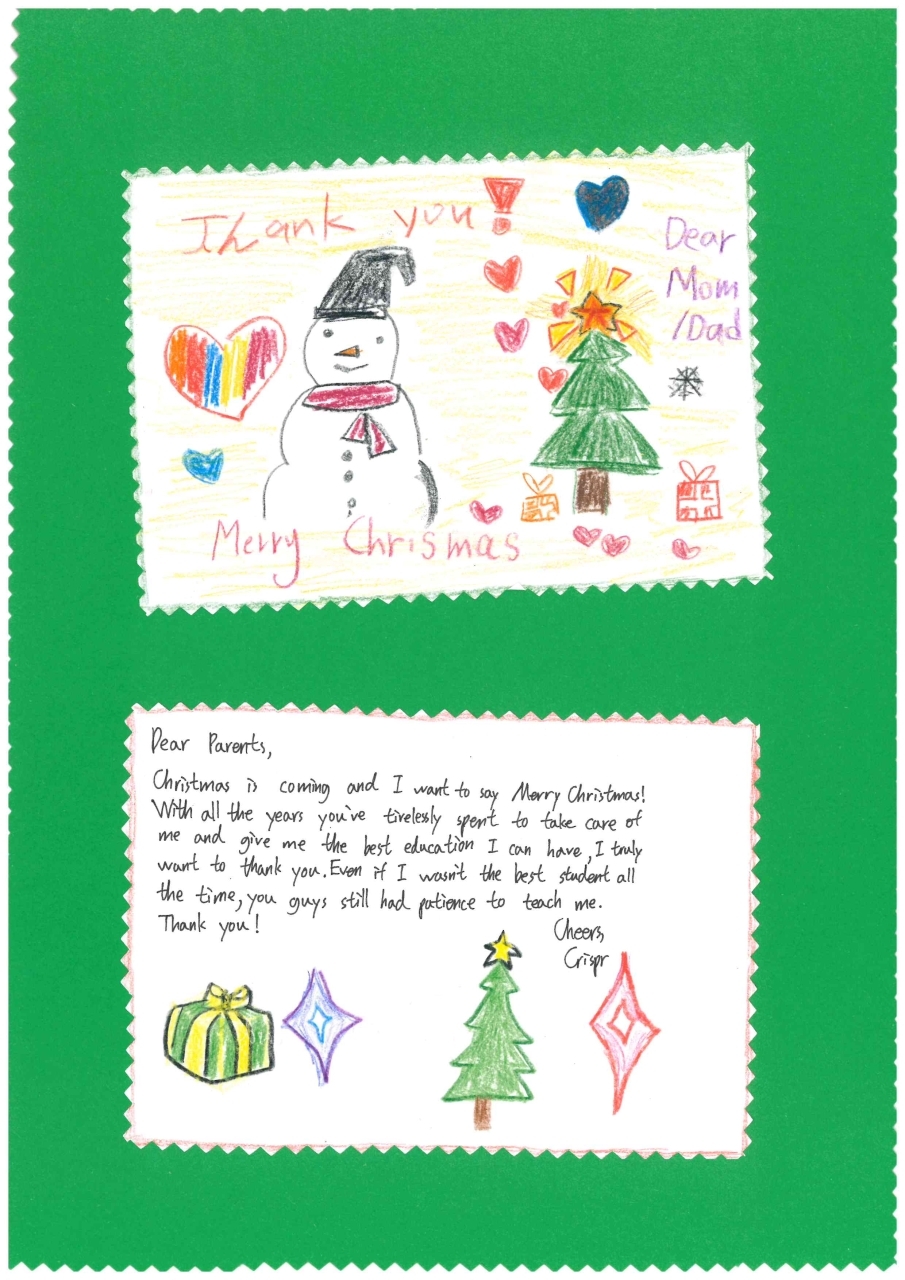 Thank you!
Dear
Mom
/Dad
Merry Chrismas
Dear Parents,
Christmas is coming and I want to say Merry Christmas!
With all the years you've tirelessly spent to take care of
me and give me the best education I can have, I truly
want to thank you. Even if I wasn't the best student all
the time, you guys still had patience to teach me.
Thank you!
Cheers,
Crispr